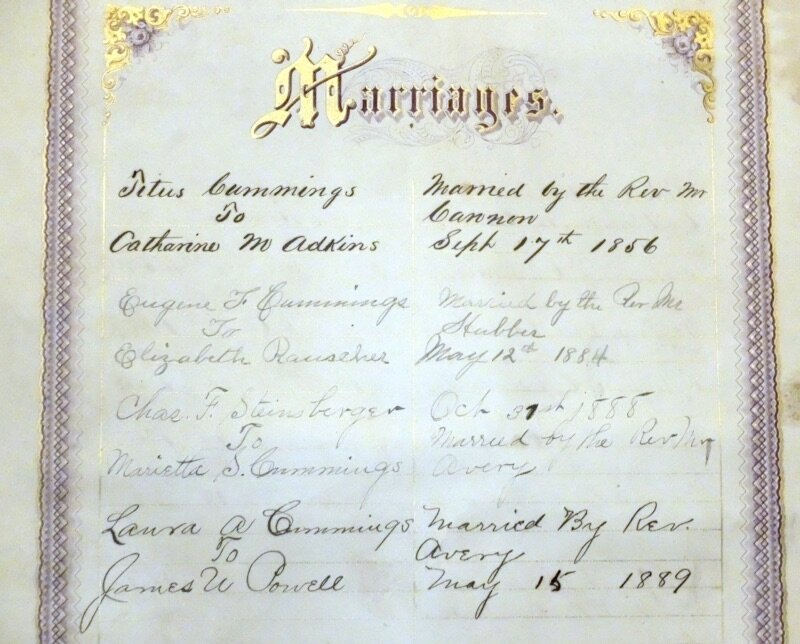 Marriages.
Titus Cummings
To
Catharine M Adkins
Married by the Rev Mr
Cannon
Sept 17th 1856
Eugene F Cummings
To
Elizabeth Rauscher
Married by the Rev Mr
Stubbs
May 12th 1884
Chas. F. Steinsberger
To
Marietta S. Cummings
Oct 31st 1888
Married by the Rev Mr
Avery
Laura A Cummings
To
James W Powell
Married By Rev.
Avery
May 15 1889